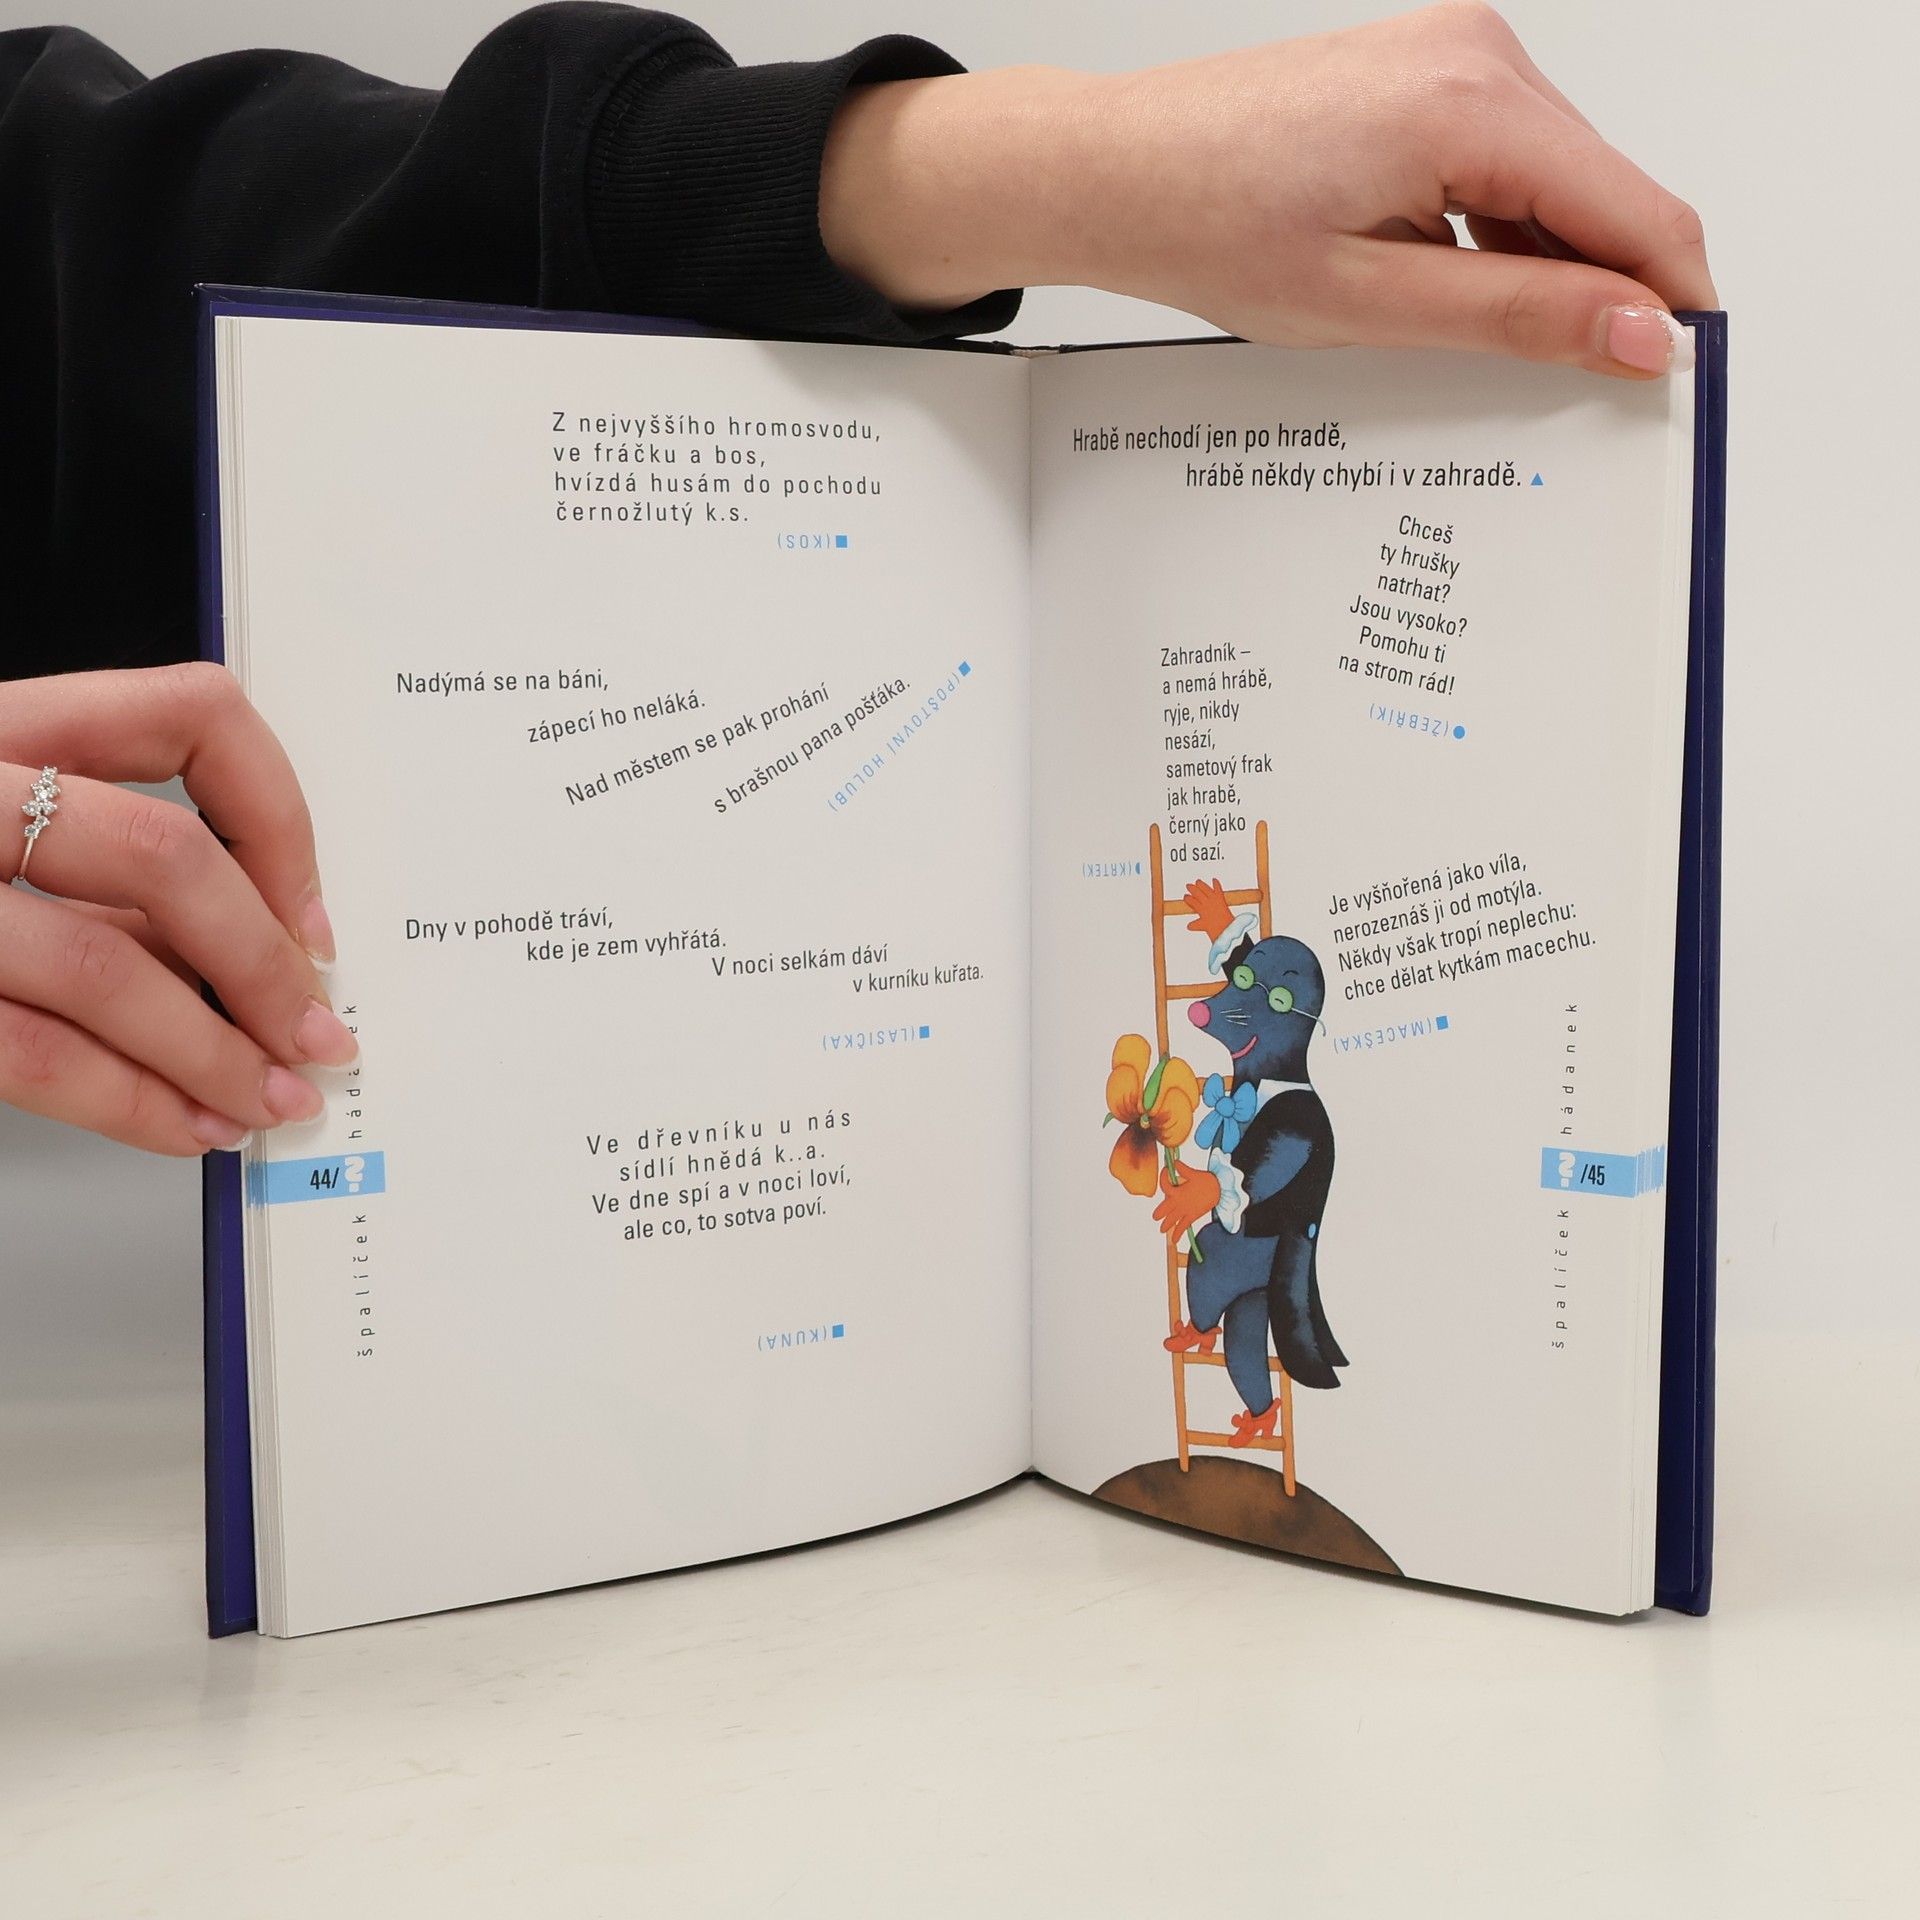 Z nejvyššího hromosvodu,
ve fráčku a bos,
hvízdá husám do pochodu
černožlutý k.s.
(KOS)
Nadýmá se na báni,
zápecí ho neláká.
Nad městem se pak prohání
s brašnou pana pošťáka.
(POŠTOVNÍ HOLUB)
Dny v pohodě tráví,
kde je zem vyhřátá.
V noci selkám dáví
v kurníku kuřata.
(LASIČKA)
Ve dřevníku u nás
sídlí hnědá k..a.
Ve dne spí a v noci loví,
ale co, to sotva poví.
(KUNA)
44/ ?
špalíček
Hrabě nechodí jen po hradě,
hrábě někdy chybí i v zahradě.
Chceš
ty hrušky
natrhat?
Jsou vysoko?
Pomohu ti
na strom rád!
(ŽEBŘÍK)
Zahradník –
a nemá hrábě,
ryje, nikdy
nesází,
sametový frak
jak hrabě,
černý jako
od sazí.
(KRTEK)
Je vyšňořená jako víla,
nerozeznáš ji od motýla.
Někdy však tropí neplechu:
chce dělat kytkám macechu.
(MACEŠKA)
? /45
špalíček hádanek